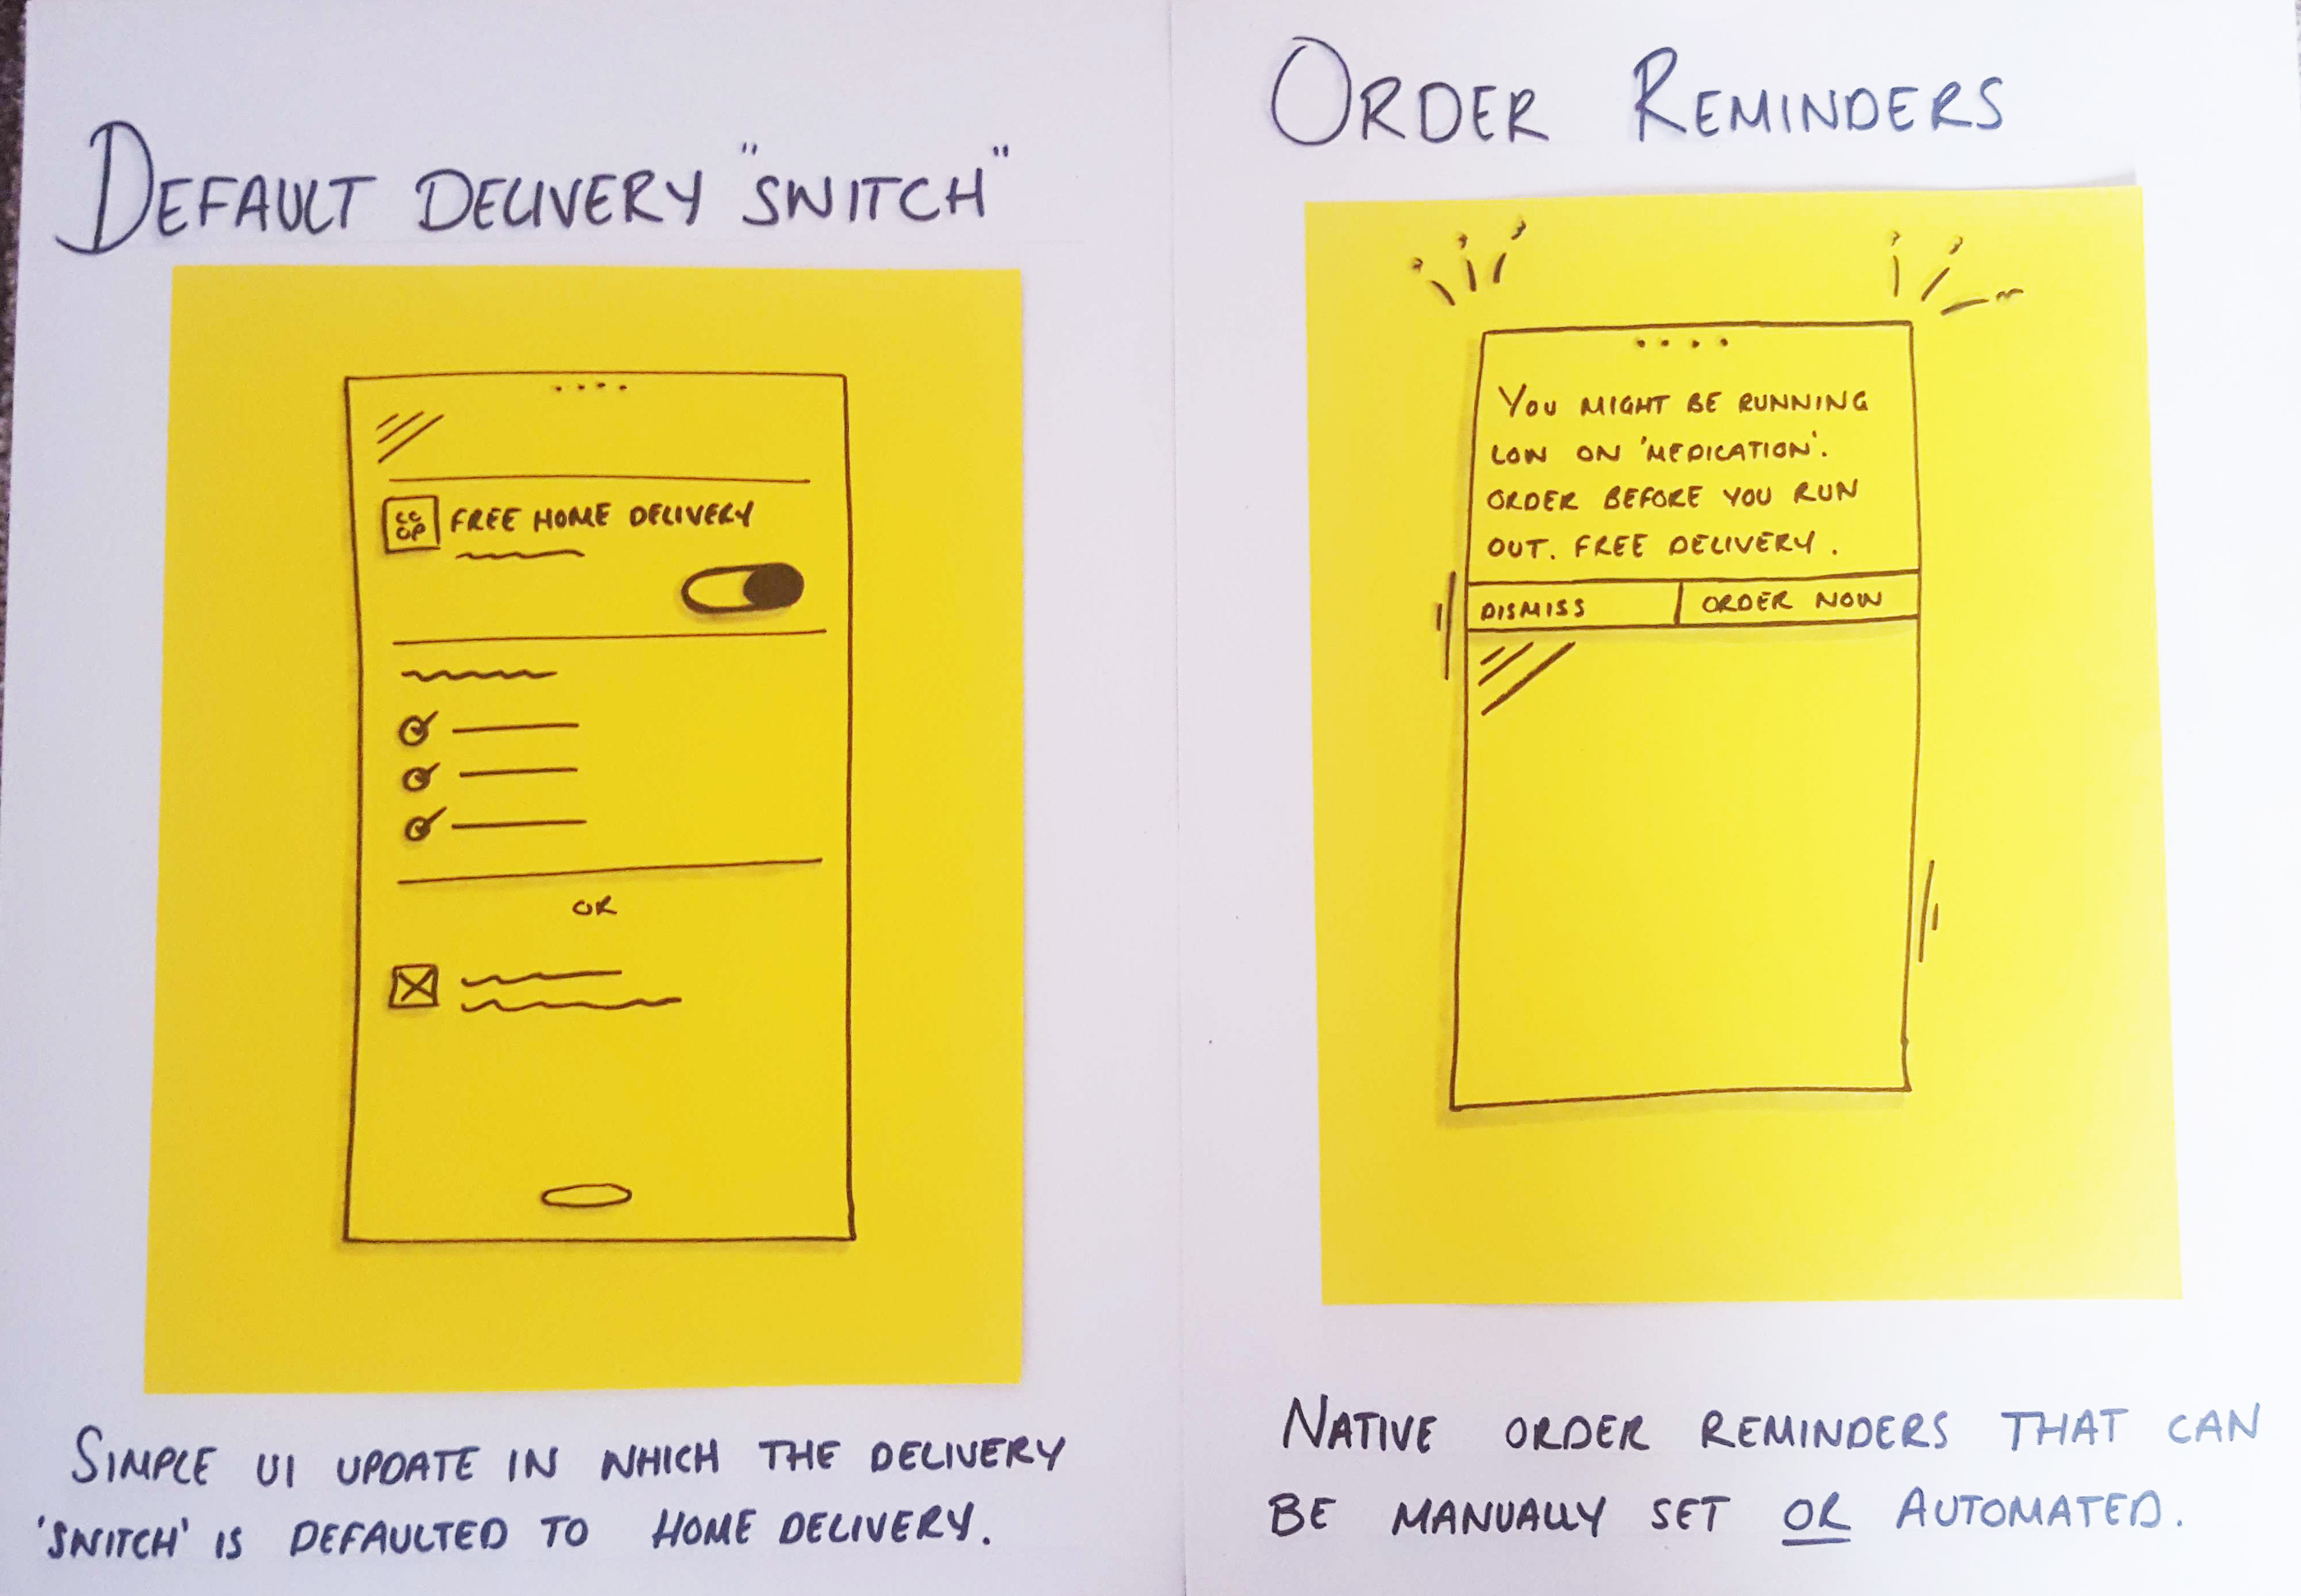 DEFAULT DELIVERY "SWITCH"
CC
OP
FREE HOME DELIVERY
OR
SIMPLE UI UPDATE IN WHICH THE DELIVERY
'SWITCH' IS DEFAULTED TO HOME DELIVERY.
ORDER REMINDERS
YOU MIGHT BE RUNNING
LOW ON 'MEDICATION'.
ORDER BEFORE YOU RUN
OUT. FREE DELIVERY.
DISMISS
ORDER NOW
NATIVE ORDER REMINDERS THAT CAN
BE MANUALLY SET OR AUTOMATED.